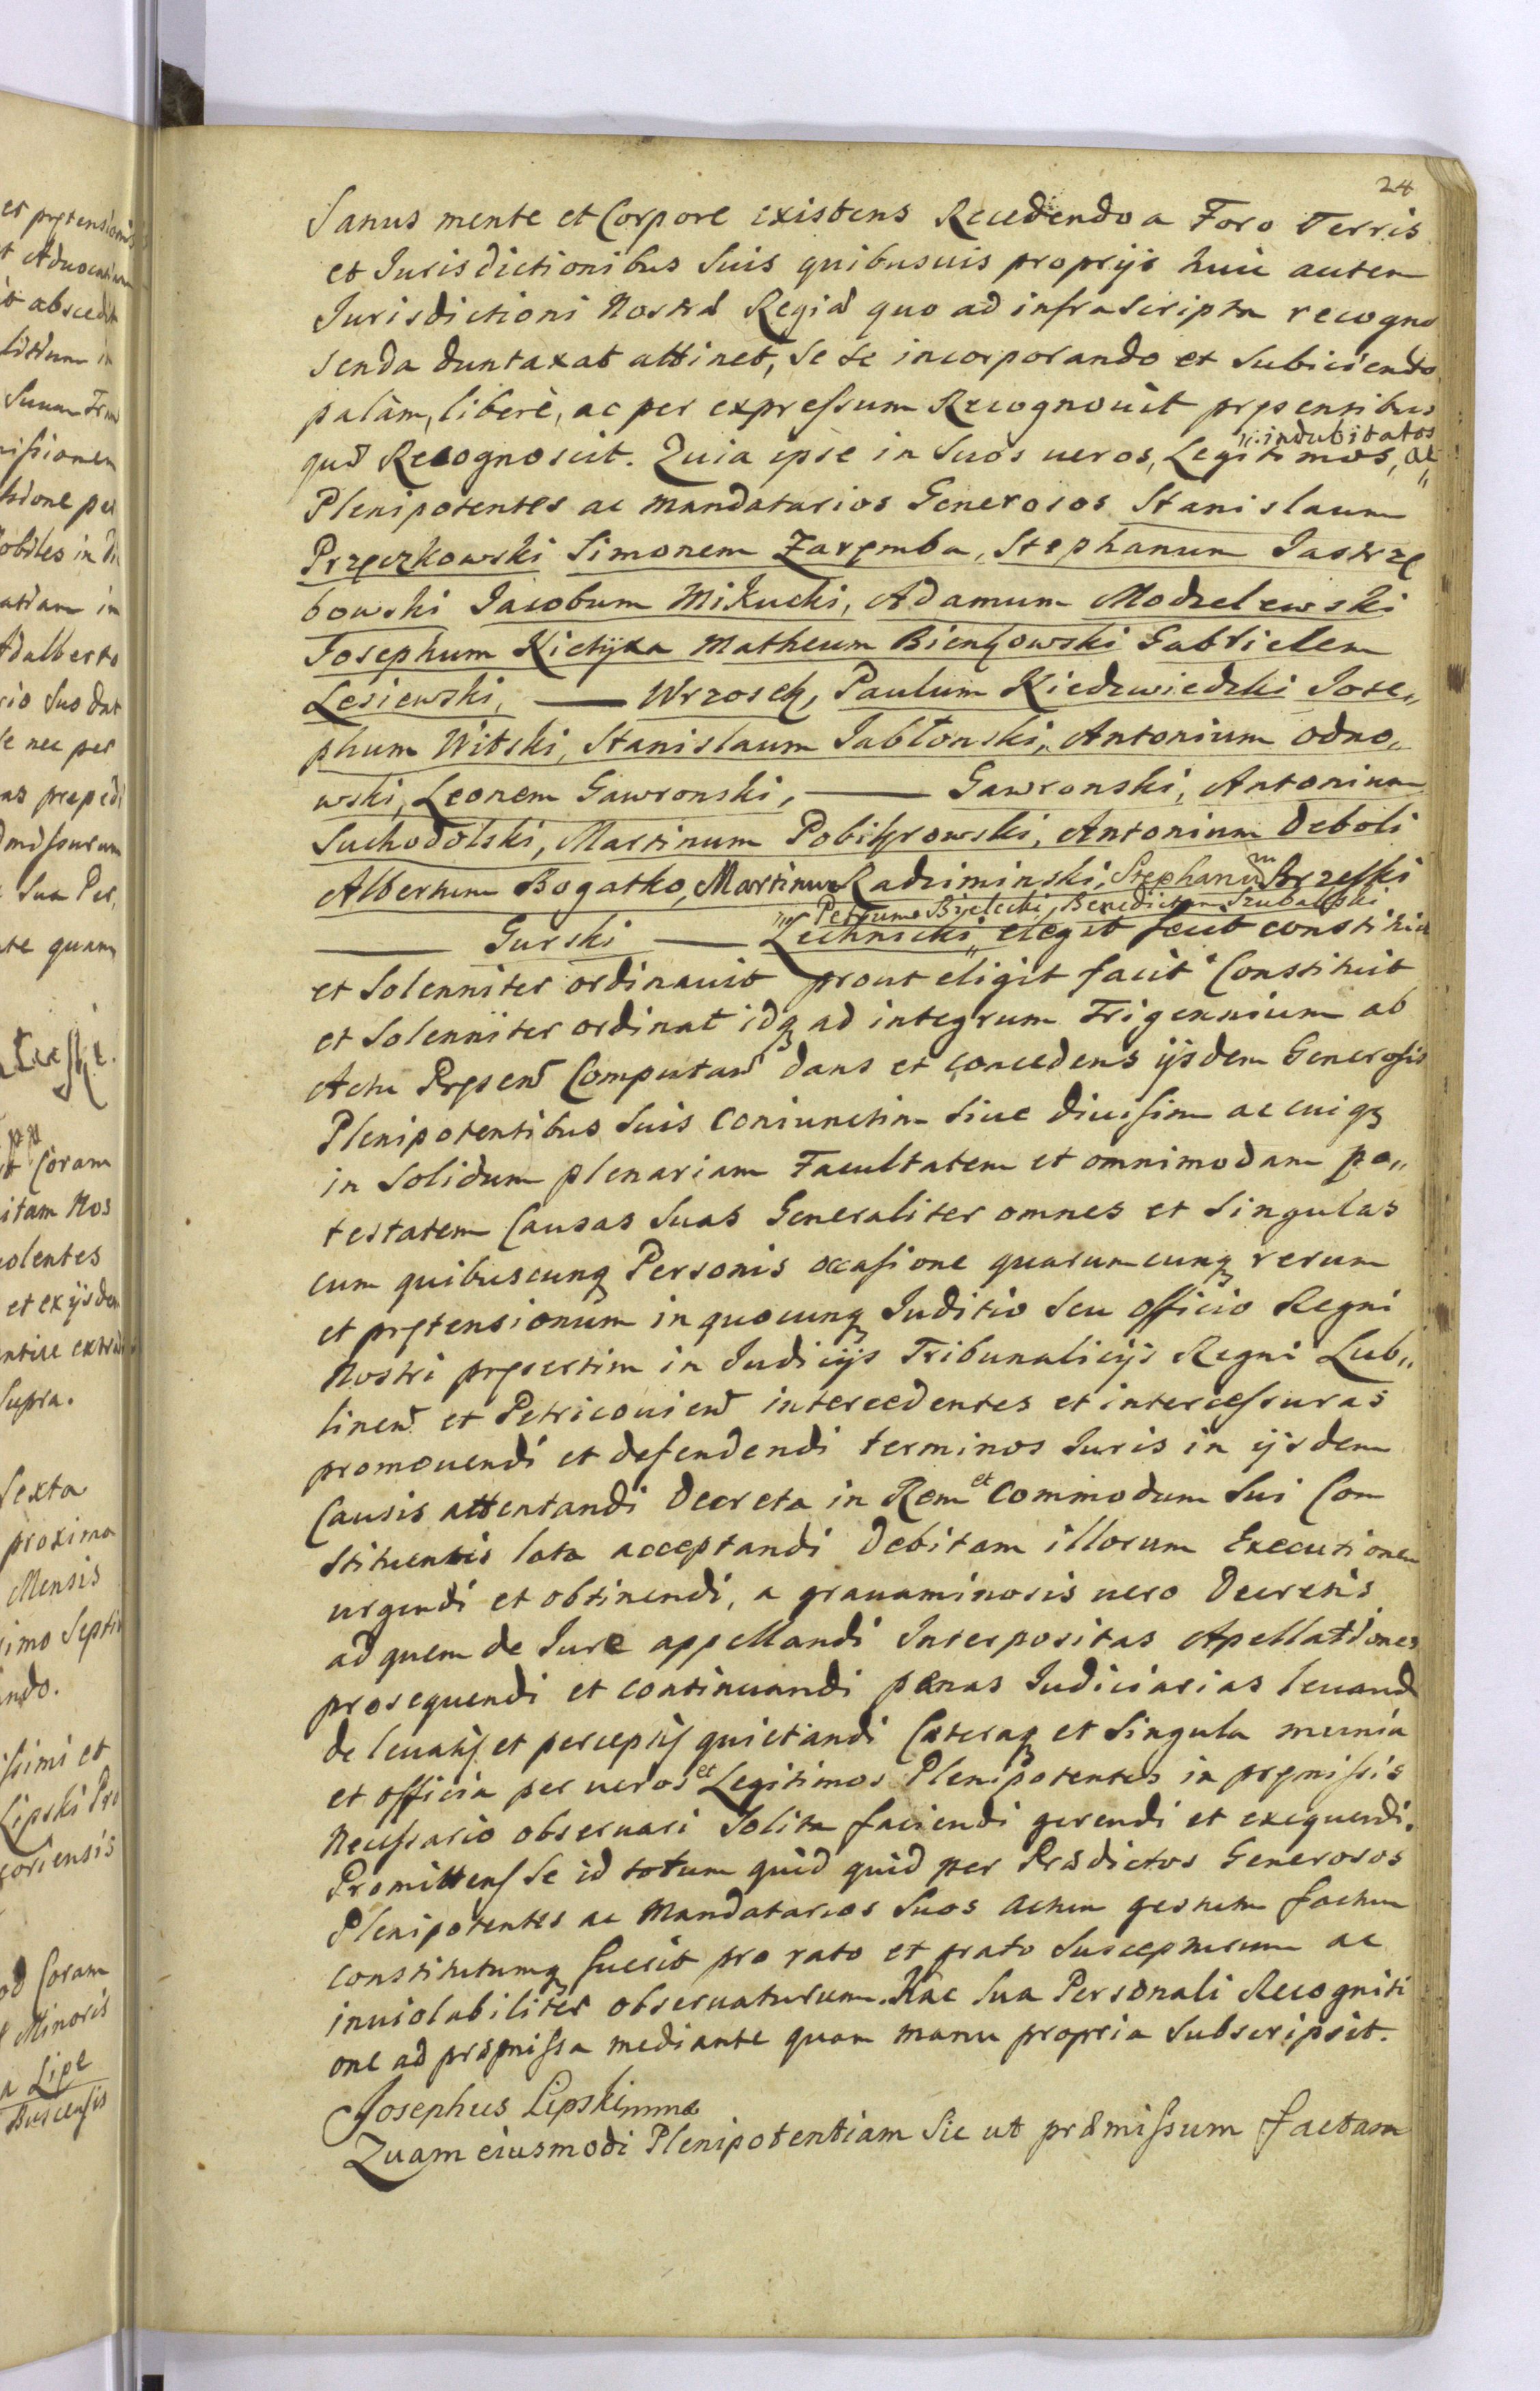 24
Sanus mente et Corpore existens Recedendo a Foro Terris
et Jurisdictionibus Suis quibusuis proprijs huic autem
Jurisdictioni Nostræ Regiæ quo ad infrascripta recogno
scenda duntaxat attinet, se se incorporando et subiiciendo
palàm, liberè, ac per expressum Recognouit pręsentibus
quæ Recognoscit. Quia ipse in Suos ueros, Legitimos, indubitatos ac
Plenipotentes ac mandatarios Generosos Stanislaum
Przęczkowski Simonem Zaręmba, Stephanum Jastrzę
bowski Jacobum Mikucki, Adamum Modzelewski
Josephum Kiełyka Matheum Bienkowski Gabrielem
Lesiewski, — Wrzosek, Paulum Kiedzwiedzki Jose„
phum Witski, Stanislaum Jabłonski, Antonium Odno„
wski, Leonem Gawronski, — Gawronski, Antonium
Suchodolski, Martinum Pobikrowski, Antonium Deboli
Albertum Bogatko, Martinum Radziminski, Stephanum Brzeski
Petrum Bielecki, Benedictum Szubalski
— Gurski — Lechnicki, elegit fecit constituit
et Solenniter ordinauit prout eligit facit Constituit
et Solenniter ordinat idq ad integrum Trigennium ab
Actu Pręsen Computan dans et concedens ijsdem Generosis
Plenipotentibus Suis coniunctim siue diuisim ac cuiq
in Solidum plenariam Facultatem et omnimodam po„
testatem Causas Suas Generaliter omnes et Singulas
cum quibuscunq Personis occasione quarumcunq rerum
et prętensionum in quocunq Juditio seu officio Regni
Nostri pręsertim in Judicijs Tribunalicijs Regni Lub„
linen et Petricouien intercedentes et intercessuras
promouendi et defendendi terminos Juris in ijsdem
Causis attentandi Decreta in Rem et Commodum Sui Con
stituentis lata acceptandi Debitam illorum Executionem
urgendi et obtinendi, a grauaminosis uero Decretis
ad quem de Jure appellandi Interpositas Apellationes
prosequendi et continuandi pænas Judiciarias leuandi
de leuatis et perceptis quietandi Cæteraq et Singula munia
et officia per ueros et Legitimos Plenipotentes in pręmissis
Necessario obseruari Solita faciendi gerendi et exequendi.
Promittens Se id totum quid quid per Prædictos Generosos
Plenipotentes ac Mandatarios Suos actum gestum factum
constitutumq fuerit pro rato et grato Suscepturum ac
inuiolabiliter obseruaturum. Hac Sua Personali Recogniti
one ad præmissa mediante quam manu propria Subscripsit.
Josephus Lipski mmp
Quam eiusmodi Plenipotentiam Sic ut præmissum factam